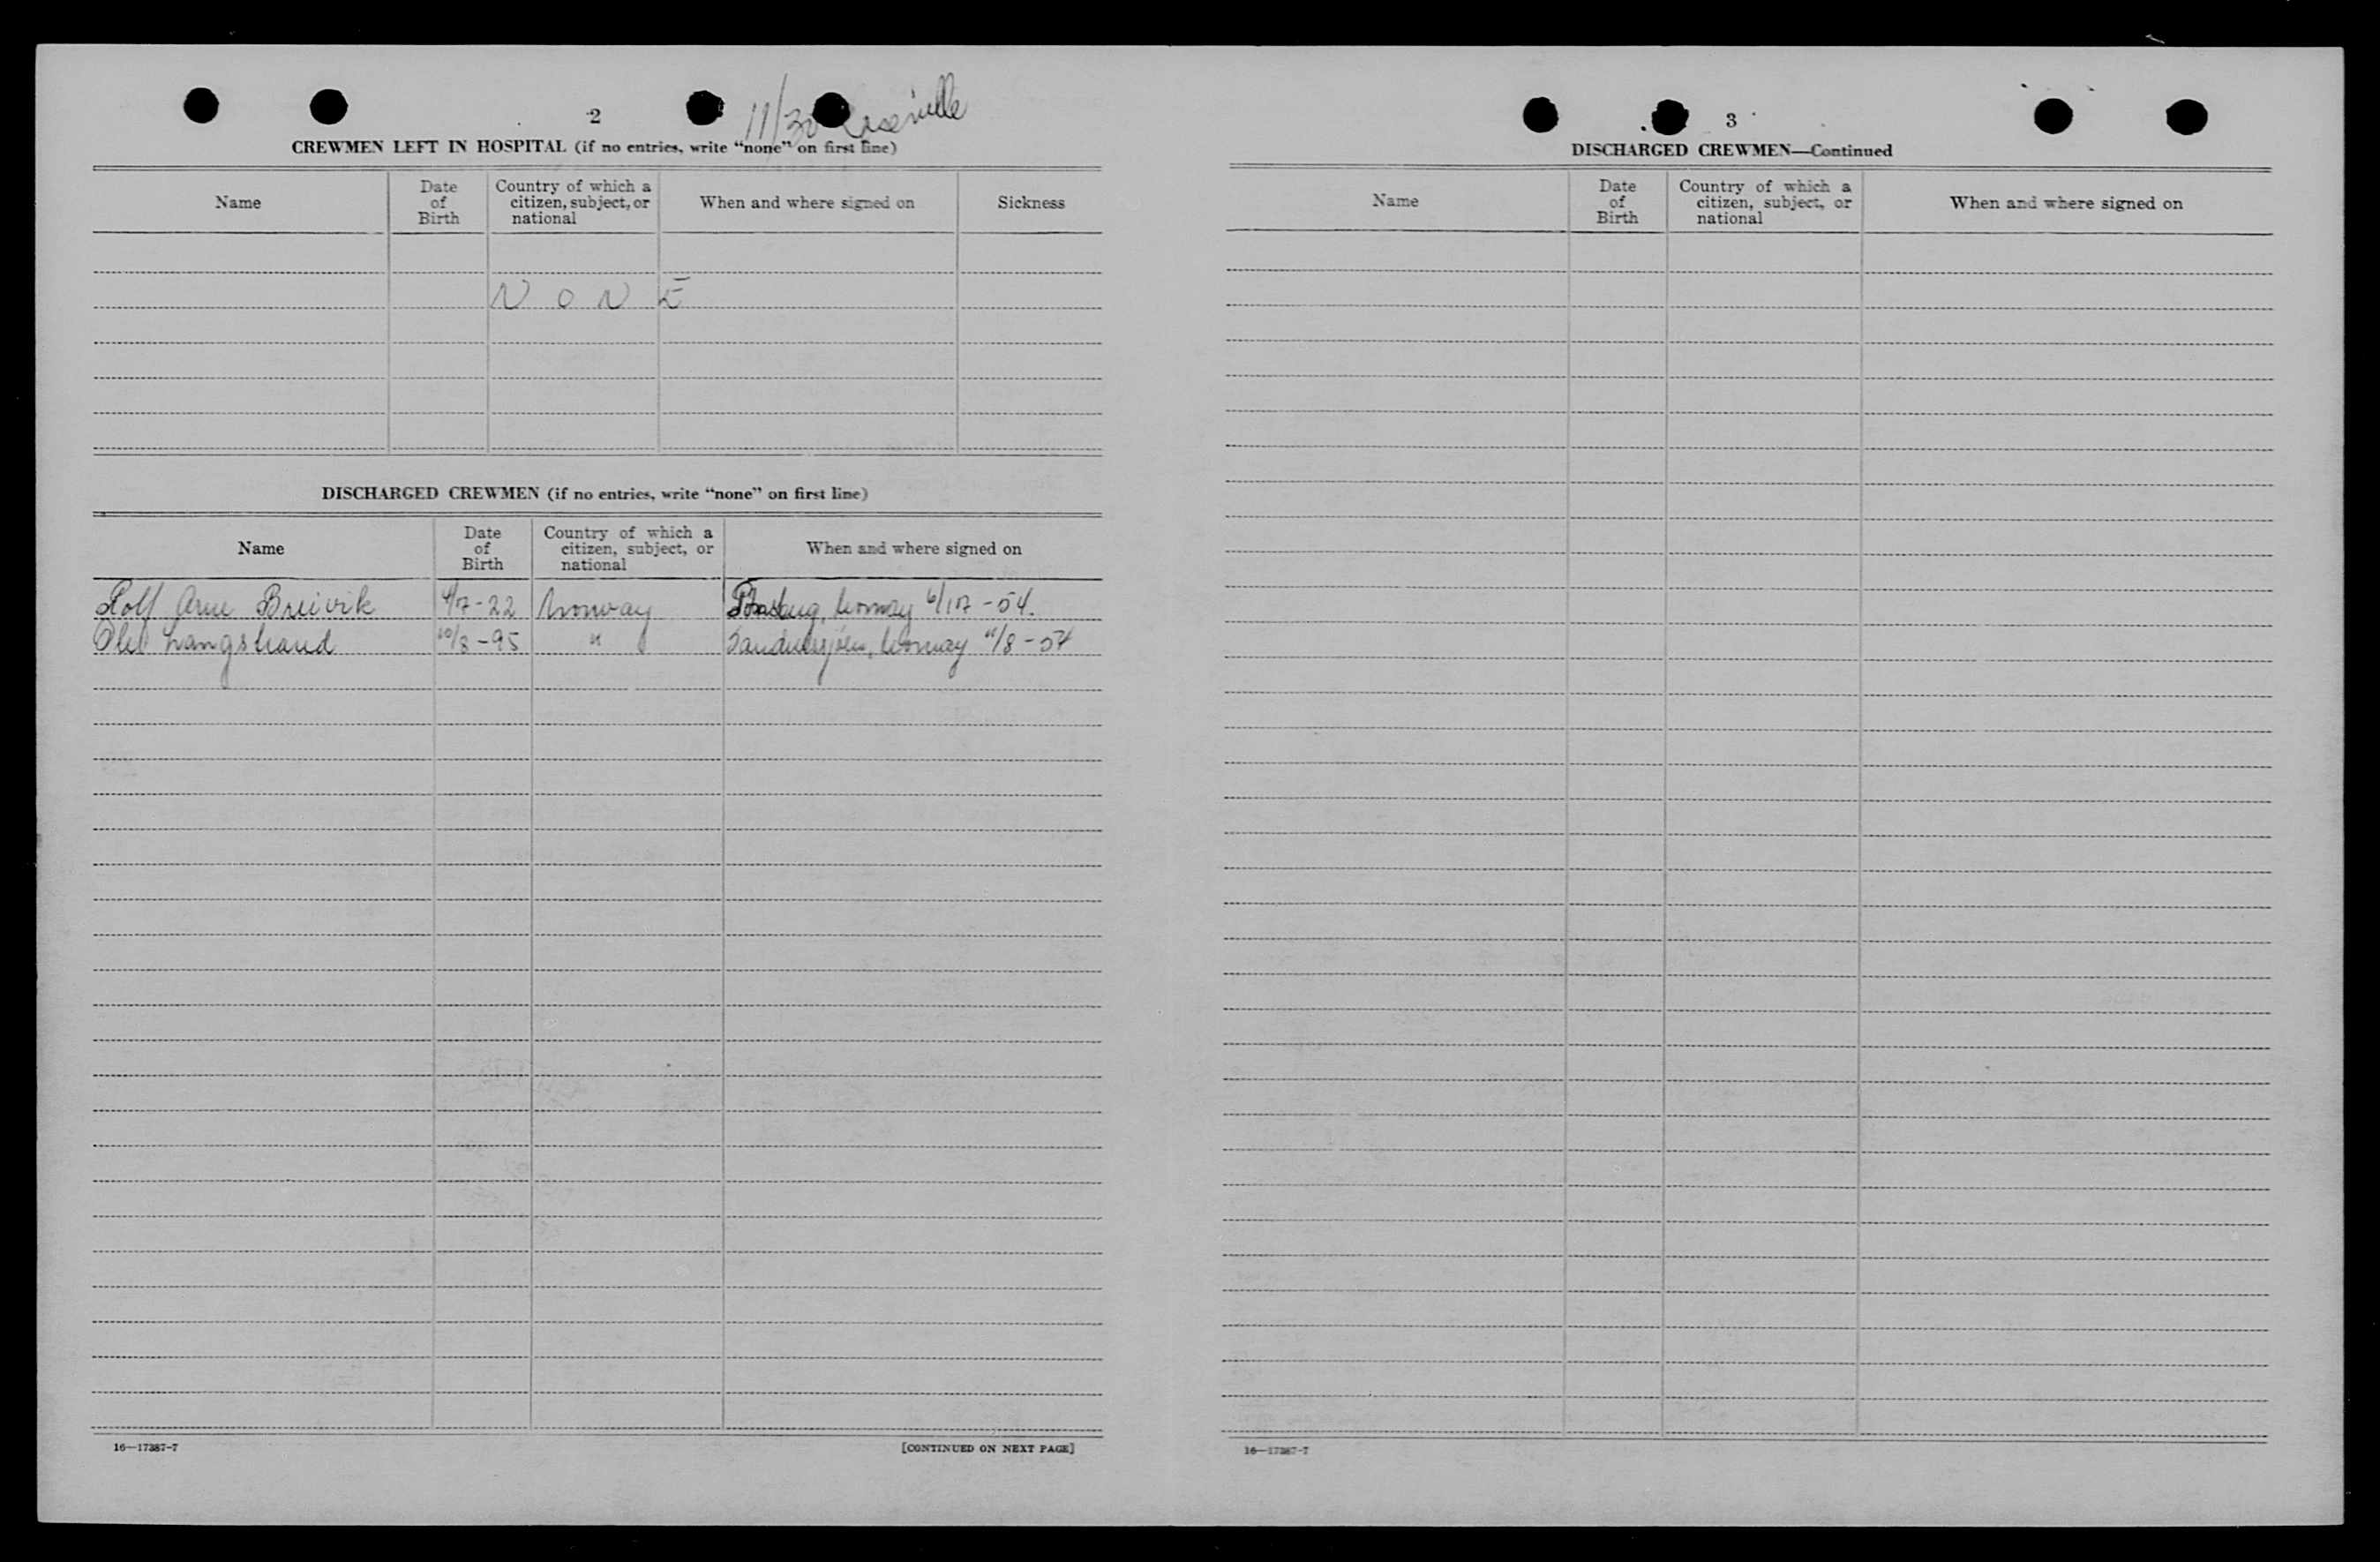 2
11/30 Roseville
CREWMEN LEFT IN HOSPITAL (if no entries, write “none” on first line)
Name
Date of Birth
Country of which a citizen, subject, or national
When and where signed on
Sickness
N O N E
DISCHARGED CREWMEN (if no entries, write “none” on first line)
Name
Date of Birth
Country of which a citizen, subject, or national
When and where signed on
Rolf Arne Breivik 4/12-22 Norway Norway 6/107-54.
Olel Langstrand 20/8-95 " Norway 11/8-54
16—17387-7
[CONTINUED ON NEXT PAGE]
3
DISCHARGED CREWMEN—Continued
Name
Date of Birth
Country of which a citizen, subject, or national
When and where signed on
16—17387-7